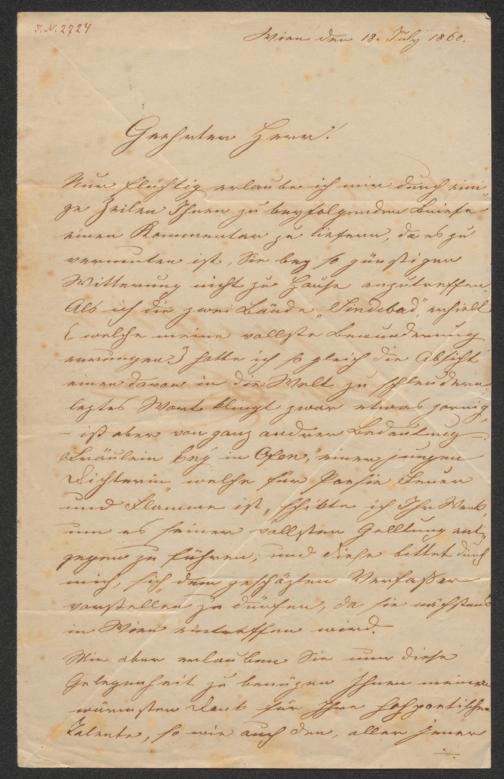 I.N. 2724
Wien den 18. July 1860.
Geehrter Herr!
Nur flüchtig erlaube ich mir durch eini
ge Zeilen Ihnen zu beyfolgendem Briefe
einen Kommentar zu liefern, da es zu
vermuten ist, Sie bey so günstiger
Witterung nicht zu Hause anzutreffen.
Als ich die zwei Bände „Sindbad“ erhielt
(welche meine vollste Bewunderung
errungen) hatte ich so gleich die Absicht
einen davon in die Welt zu schleudern
leztes Wort klingt zwar etwas zornig,
– ist aber von ganz andrer Bedeutung –
Fräulein in Ofen, einer jungen
Dichterin welche für Poesie Feuer
und Flamme ist, schickte ich Ihr Werk
um es seiner vollsten Geltung ent
gegen zu führen; und diese bittet durch
mich, sich dem geschäzten Verfaßer
vorstellen zu dürfen, da sie nächstens
in Wien eintreffen wird.
Mir aber erlauben Sie nun diese
Gelegenheit zu benüzen Ihnen meinen
wärmsten Dank für Ihre hochpoetischen
Talente, so wie auch den, aller jener